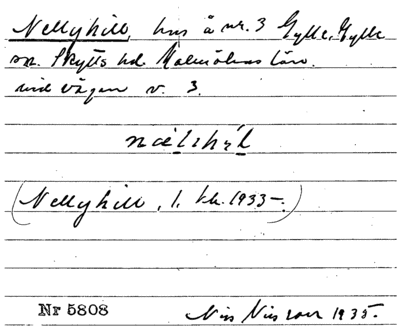 Nellyhill, hus å nr. 3 Gylle, Gylle
sn. Skytts hd. Malmöhus län.
vid vägen v. 3.
(Nellyhill, 1. kk. 1933-.)
Nr 5808
Nils Nilsson 1935.